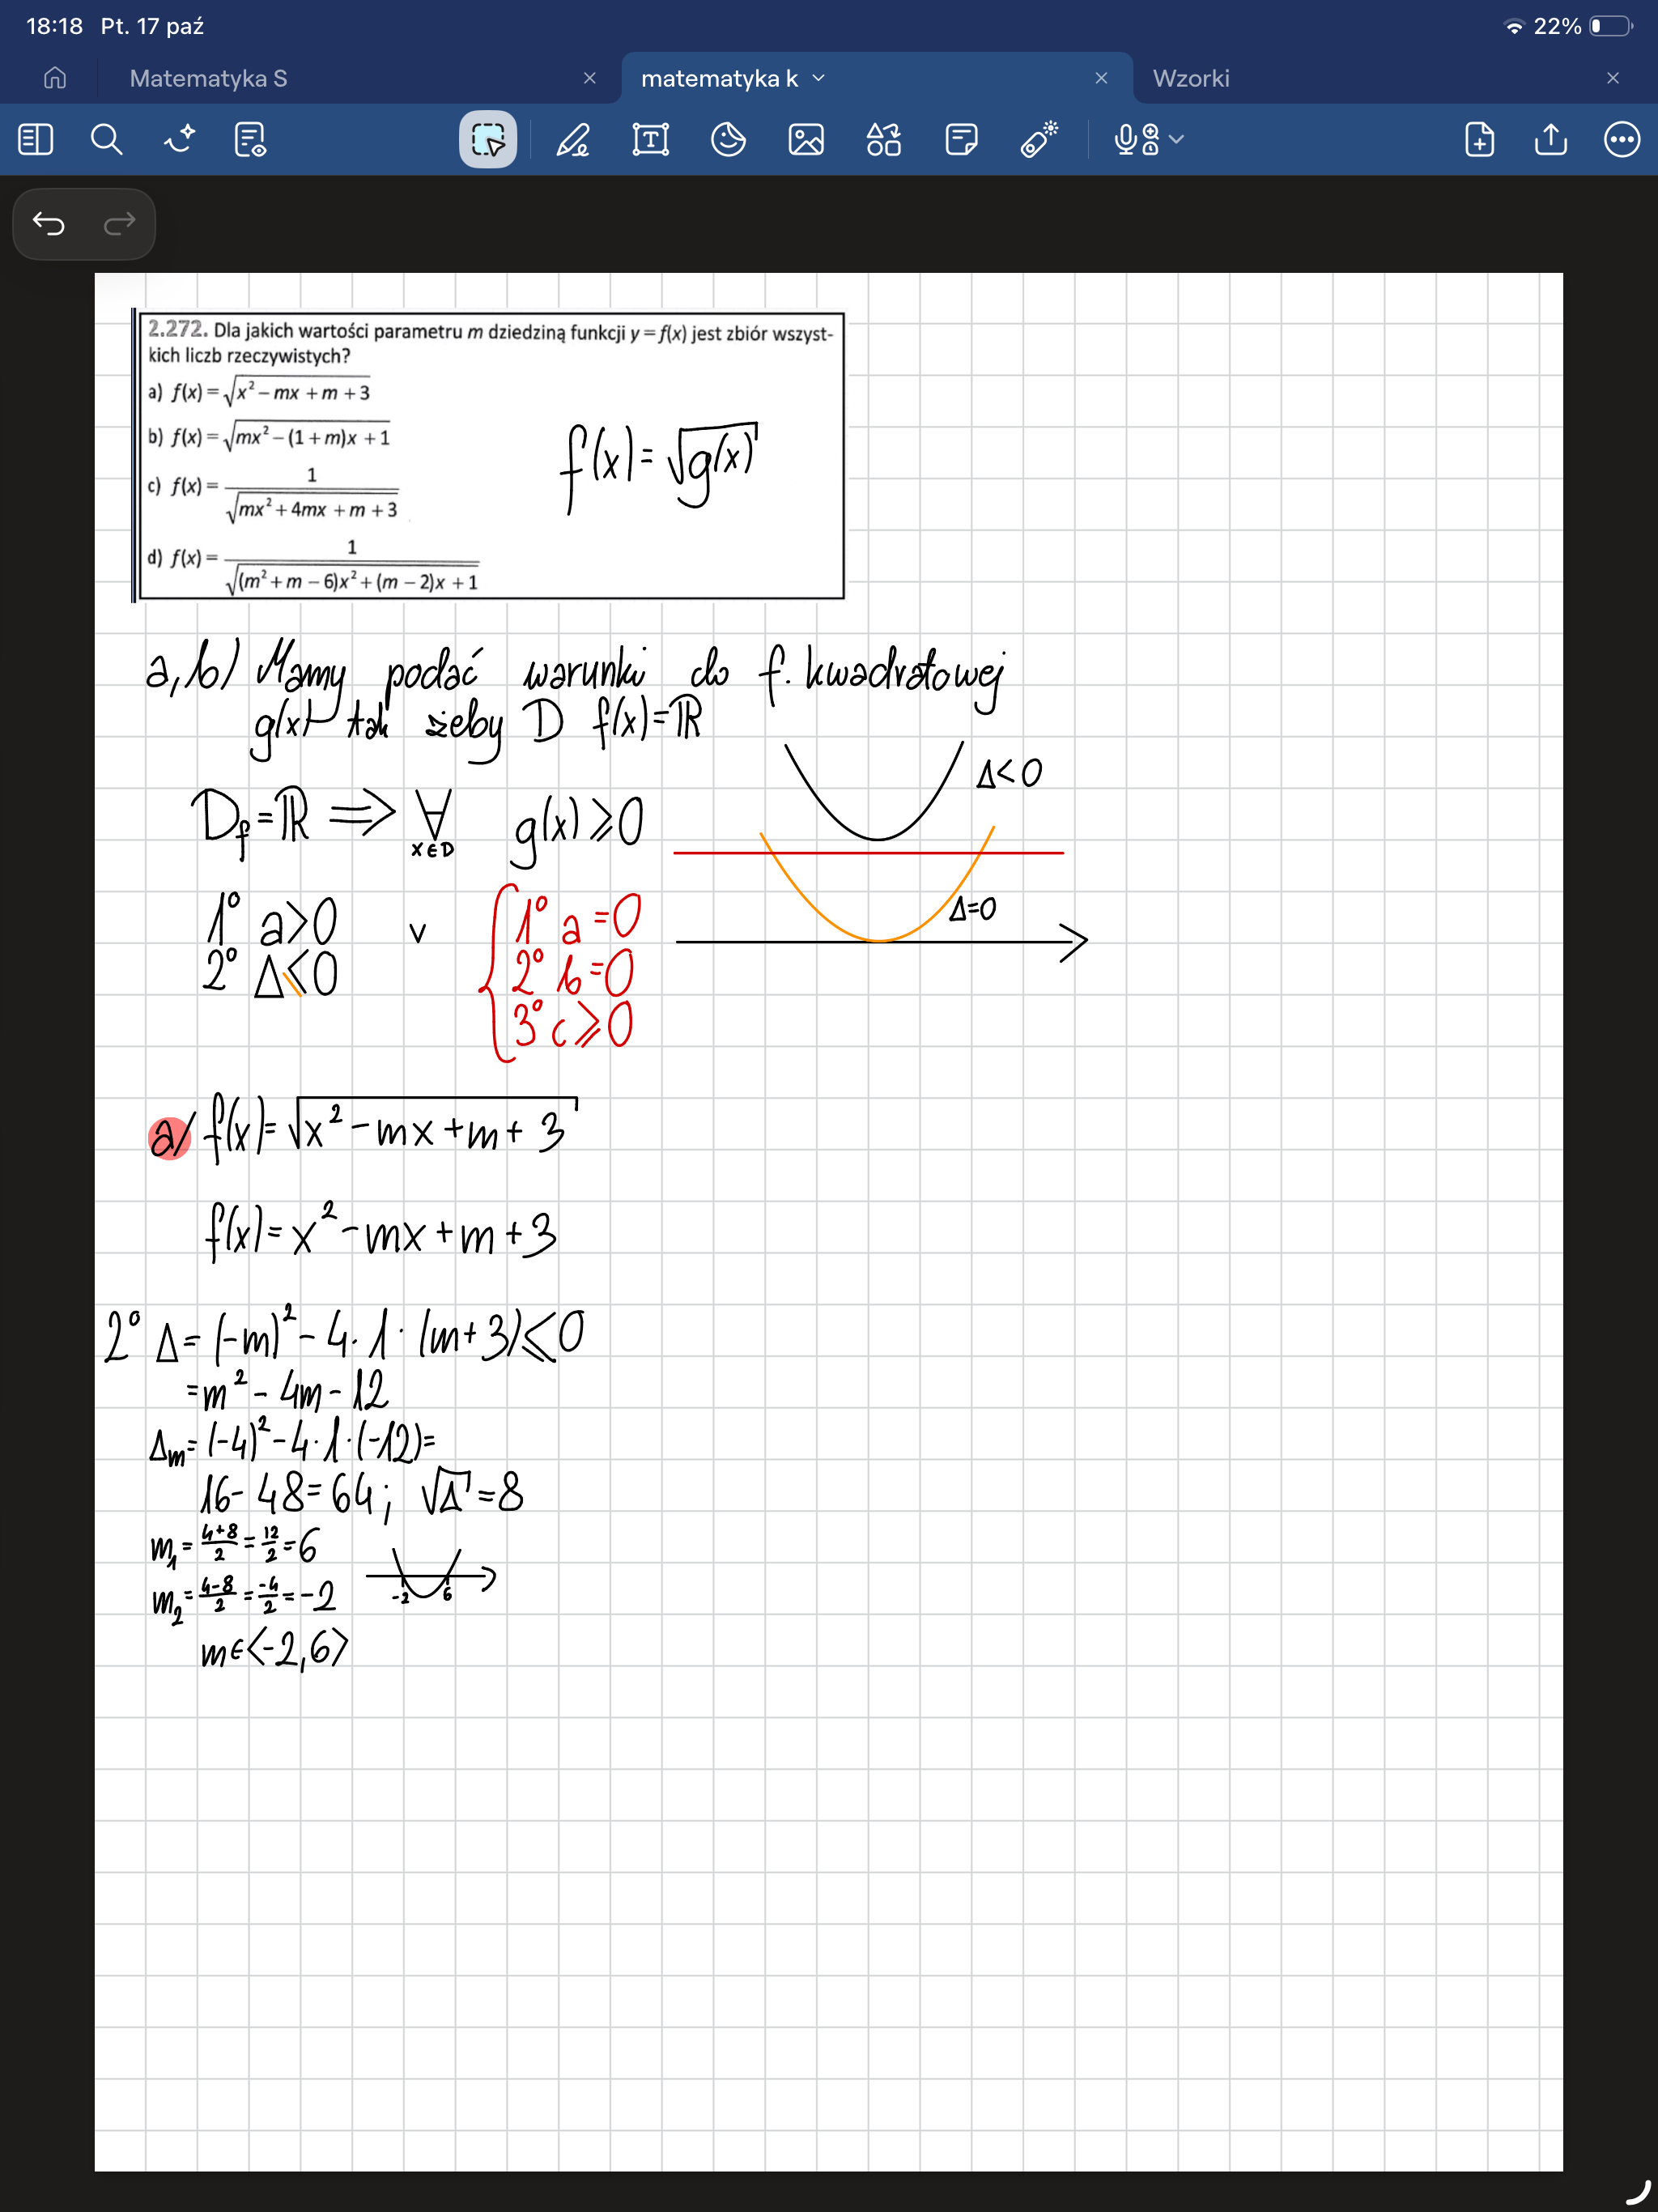 18:18 Pt. 17 paź 22%
Matematyka S
matematyka k
Wzorki
2.272. Dla jakich wartości parametru m dziedziną funkcji y = f(x) jest zbiór wszyst-
kich liczb rzeczywistych?
a) f(x) = √(x² – mx + m + 3)
b) f(x) = √(mx² – (1 + m)x + 1)
c) f(x) = 1/√(mx² + 4mx + m + 3)
d) f(x) = 1/√((m² + m – 6)x² + (m – 2)x + 1)
f(x) = √g(x)
a,b) Mamy podać warunki do f. kwadratowej
g(x) tak żeby D f(x)=ℝ
D_f=ℝ ⟹ ∀ x∈D g(x)⩾0
Δ<0
Δ=0
1° a>0 v
2° Δ⩽0
1° a=0
2° b=0
3° c⩾0
a) f(x)= √(x²-mx+m+3)
f(x)= x²-mx+m+3
2° Δ= (-m)²-4·1·(m+3)⩽0
=m²-4m-12
Δm= (-4)²-4·1·(-12)=
16-48=64; √Δ=8
m₁= (4+8)/2 = 12/2 = 6
m₂= (4-8)/2 = -4/2 = -2
-2 6
m∈<-2,6>